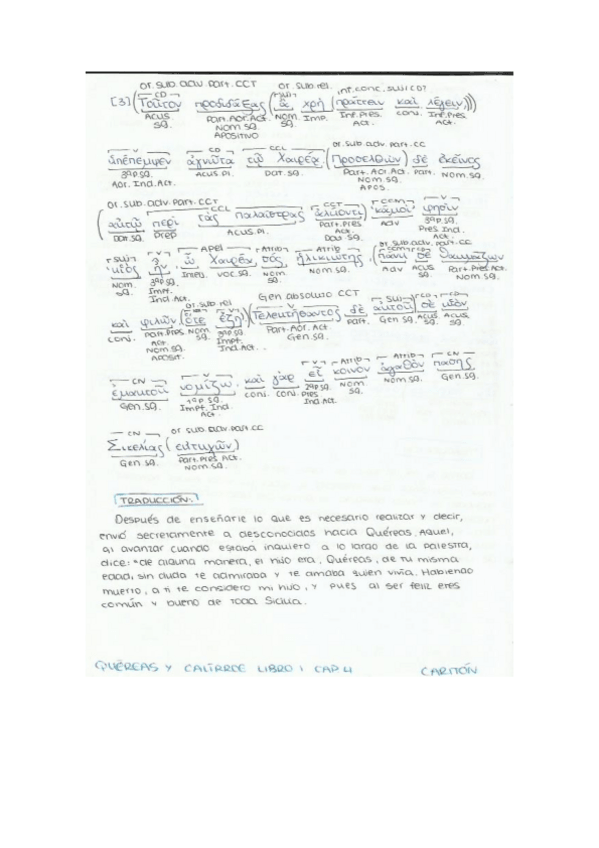 or. sub. adv. Part. CCT or. sub. rel. inf. conc. suj/CD?
[3] (Τοῦτον προδιδάξας (ἃ δὲ χρὴ (πράττειν καὶ λέγειν)))
CD V SUJ
Acus. sg. Part. Aor. Act. Nom. sg. Apositivo Nom. sg. Imp. Inf. Pres. Act. conj. Inf. Pres. Act.
V CD CCL or. sub. adv. part. CC
ὑπέπεμψεν ἀγνῶτα τῷ Χαιρέᾳ. (Προσελθὼν) δὲ ἐκεῖνος
3ªp.sg. Aor. Ind. Act. Acus. Pl. Dat. sg. Part. Aor. Act. Nom. sg. Apos. Part. Nom. sg.
or. sub. adv. Part. CCT
(αὐτῷ περὶ τὰς παλαίστρας ἀλύοντι) "κἀμοὶ" φησὶν
CCL CCT CCM V
Dat. sg. prep. Acus. Pl. Part. Pres. Act. Dat. sg. Adv 3ªp.sg. Pres. Ind. Act.
SUJ V Apel Atrib Atrib or. sub. adv. part. CC
υἱὸς ἦν, ὦ Χαιρέα, σὸς ἡλικιώτης, (πάνυ σὲ θαυμάζων
Nom. sg. 3ªp.sg. Impt. Ind. Act. Interj. voc. sg. Nom. sg. Nom. sg. Adv Acus. sg. Part. Pres. Act. Nom. sg.
or. sub. rel Gen absoluto CCT
καὶ φιλῶν (ὅτε ἔζη). (Τελευτήσαντος) δὲ αὐτοῦ σὲ υἱὸν
conj. Part. Pres. Act. Nom. sg. Aposit. Nom sg. 3ªp.sg. Impt. Ind. Act. Part. Aor. Act. Gen. sg. Part. Gen sg. Acus sg. Acus. sg.
CN V V Atrib Atrib CN
ἐμαυτοῦ νομίζω, καὶ γὰρ εἶ κοινὸν ἀγαθὸν πάσης
Gen. sg. 1ªp.sg. Impt. Ind. Act. conj. conj. 2ªp.sg. Pres Ind. Act. Nom sg. Nom. sg. Gen. sg.
CN or. sub. adv. part. CC
Σικελίας (εὐτυχῶν)
Gen. sg. Part. Pres. Act. Nom. sg.
TRADUCCIÓN:
Después de enseñarle lo que es necesario realizar y decir,
envió secretamente a desconocidos hacia Quéreas. Aquel,
al avanzar cuando estaba inquieto a lo largo de la palestra,
dice: "de alguna manera, el hijo era, Quéreas, de tu misma
edad, sin duda te admiraba y te amaba quien vivía. Habiendo
muerto, a ti te considero mi hijo, y pues al ser feliz eres
común y bueno de toda Sicilia.
QUÉREAS Y CALÍRROE LIBRO 1 CAP 4 CARITÓN